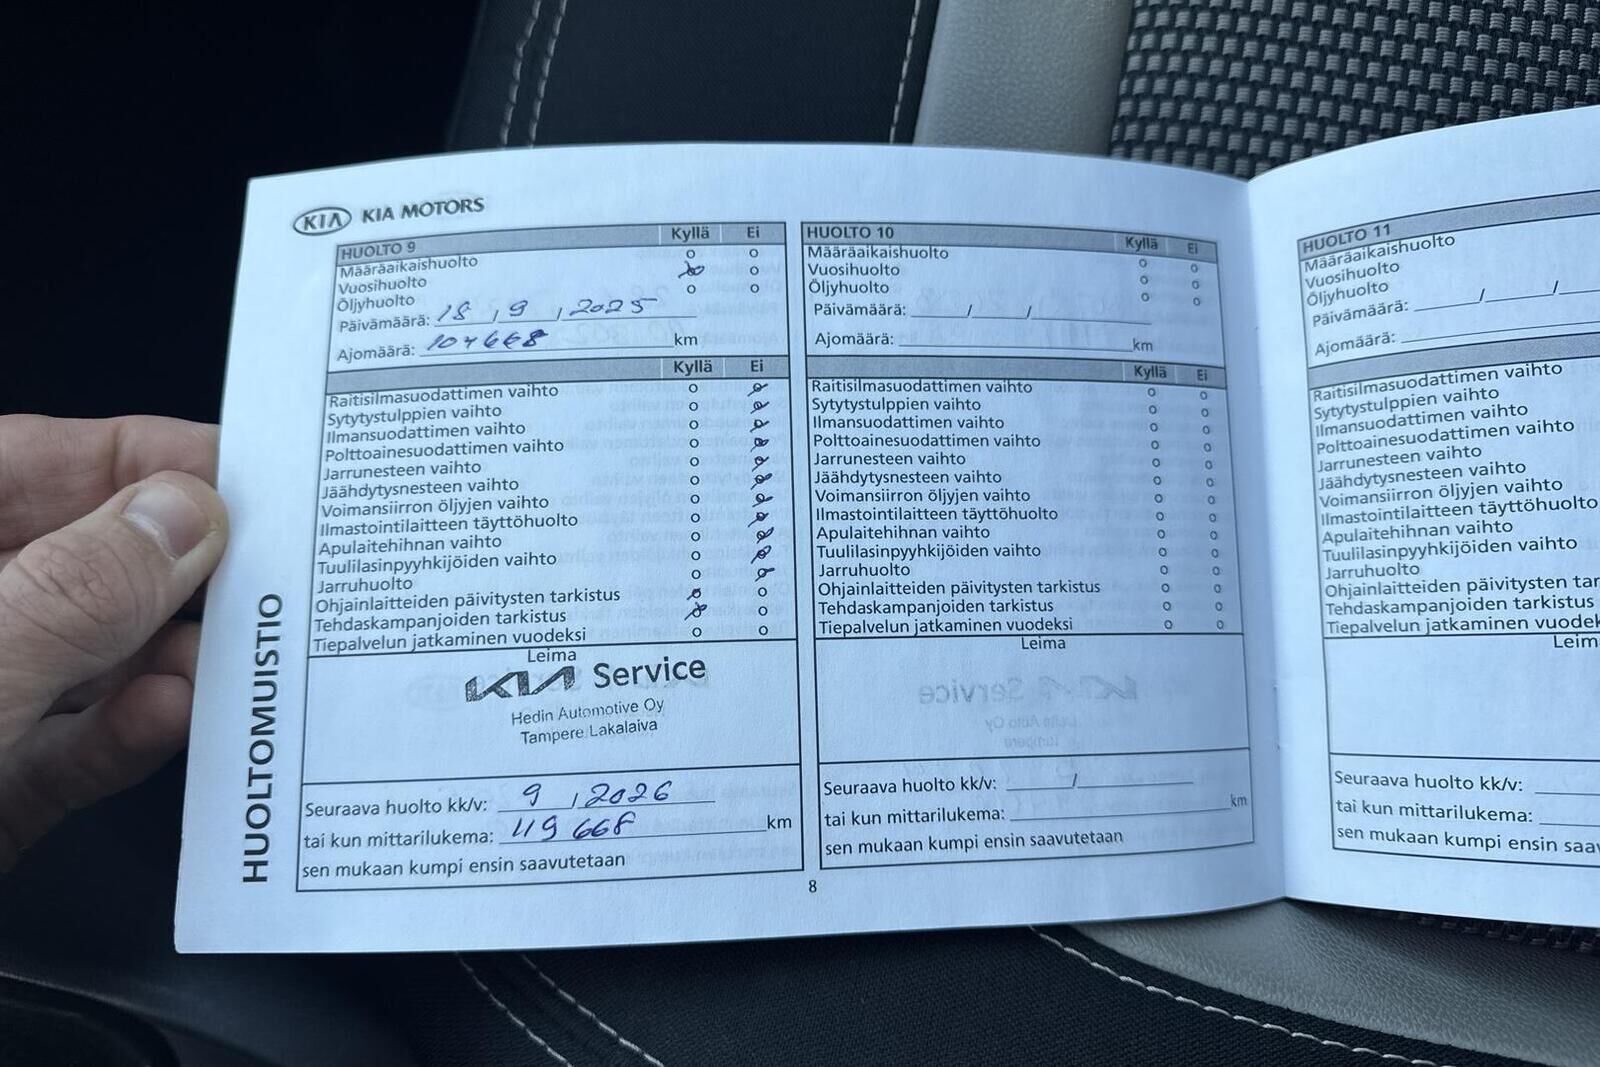 KIA KIA MOTORS
HUOLTOMUISTIO
HUOLTO 9 Kyllä Ei
Määräaikaishuolto
Vuosihuolto
Öljyhuolto
Päivämäärä: 18 , 9 , 2025
Ajomäärä: 104668 km
Kyllä Ei
Raitisilmasuodattimen vaihto
Sytytystulppien vaihto
Ilmansuodattimen vaihto
Polttoainesuodattimen vaihto
Jarrunesteen vaihto
Jäähdytysnesteen vaihto
Voimansiirron öljyjen vaihto
Ilmastointilaitteen täyttöhuolto
Apulaitehihnan vaihto
Tuulilasinpyyhkijöiden vaihto
Jarruhuolto
Ohjainlaitteiden päivitysten tarkistus
Tehdaskampanjoiden tarkistus
Tiepalvelun jatkaminen vuodeksi
Leima
KIA Service
Hedin Automotive Oy
Tampere Lakalaiva
Seuraava huolto kk/v: 9 , 2026
tai kun mittarilukema: 119 668 km
sen mukaan kumpi ensin saavutetaan
HUOLTO 10 Kyllä Ei
Määräaikaishuolto
Vuosihuolto
Öljyhuolto
Päivämäärä: / /
Ajomäärä: km
Kyllä Ei
Raitisilmasuodattimen vaihto
Sytytystulppien vaihto
Ilmansuodattimen vaihto
Polttoainesuodattimen vaihto
Jarrunesteen vaihto
Jäähdytysnesteen vaihto
Voimansiirron öljyjen vaihto
Ilmastointilaitteen täyttöhuolto
Apulaitehihnan vaihto
Tuulilasinpyyhkijöiden vaihto
Jarruhuolto
Ohjainlaitteiden päivitysten tarkistus
Tehdaskampanjoiden tarkistus
Tiepalvelun jatkaminen vuodeksi
Leima
Seuraava huolto kk/v: /
tai kun mittarilukema: km
sen mukaan kumpi ensin saavutetaan
8
HUOLTO 11
Määräaikaishuolto
Vuosihuolto
Öljyhuolto
Päivämäärä: / /
Ajomäärä:
Raitisilmasuodattimen vaihto
Sytytystulppien vaihto
Ilmansuodattimen vaihto
Polttoainesuodattimen vaihto
Jarrunesteen vaihto
Jäähdytysnesteen vaihto
Voimansiirron öljyjen vaihto
Ilmastointilaitteen täyttöhuolto
Apulaitehihnan vaihto
Tuulilasinpyyhkijöiden vaihto
Jarruhuolto
Ohjainlaitteiden päivitysten
Tehdaskampanjoiden tarkistus
Tiepalvelun jatkaminen
Seuraava huolto kk/v:
tai kun mittarilukema:
sen mukaan kumpi ensin